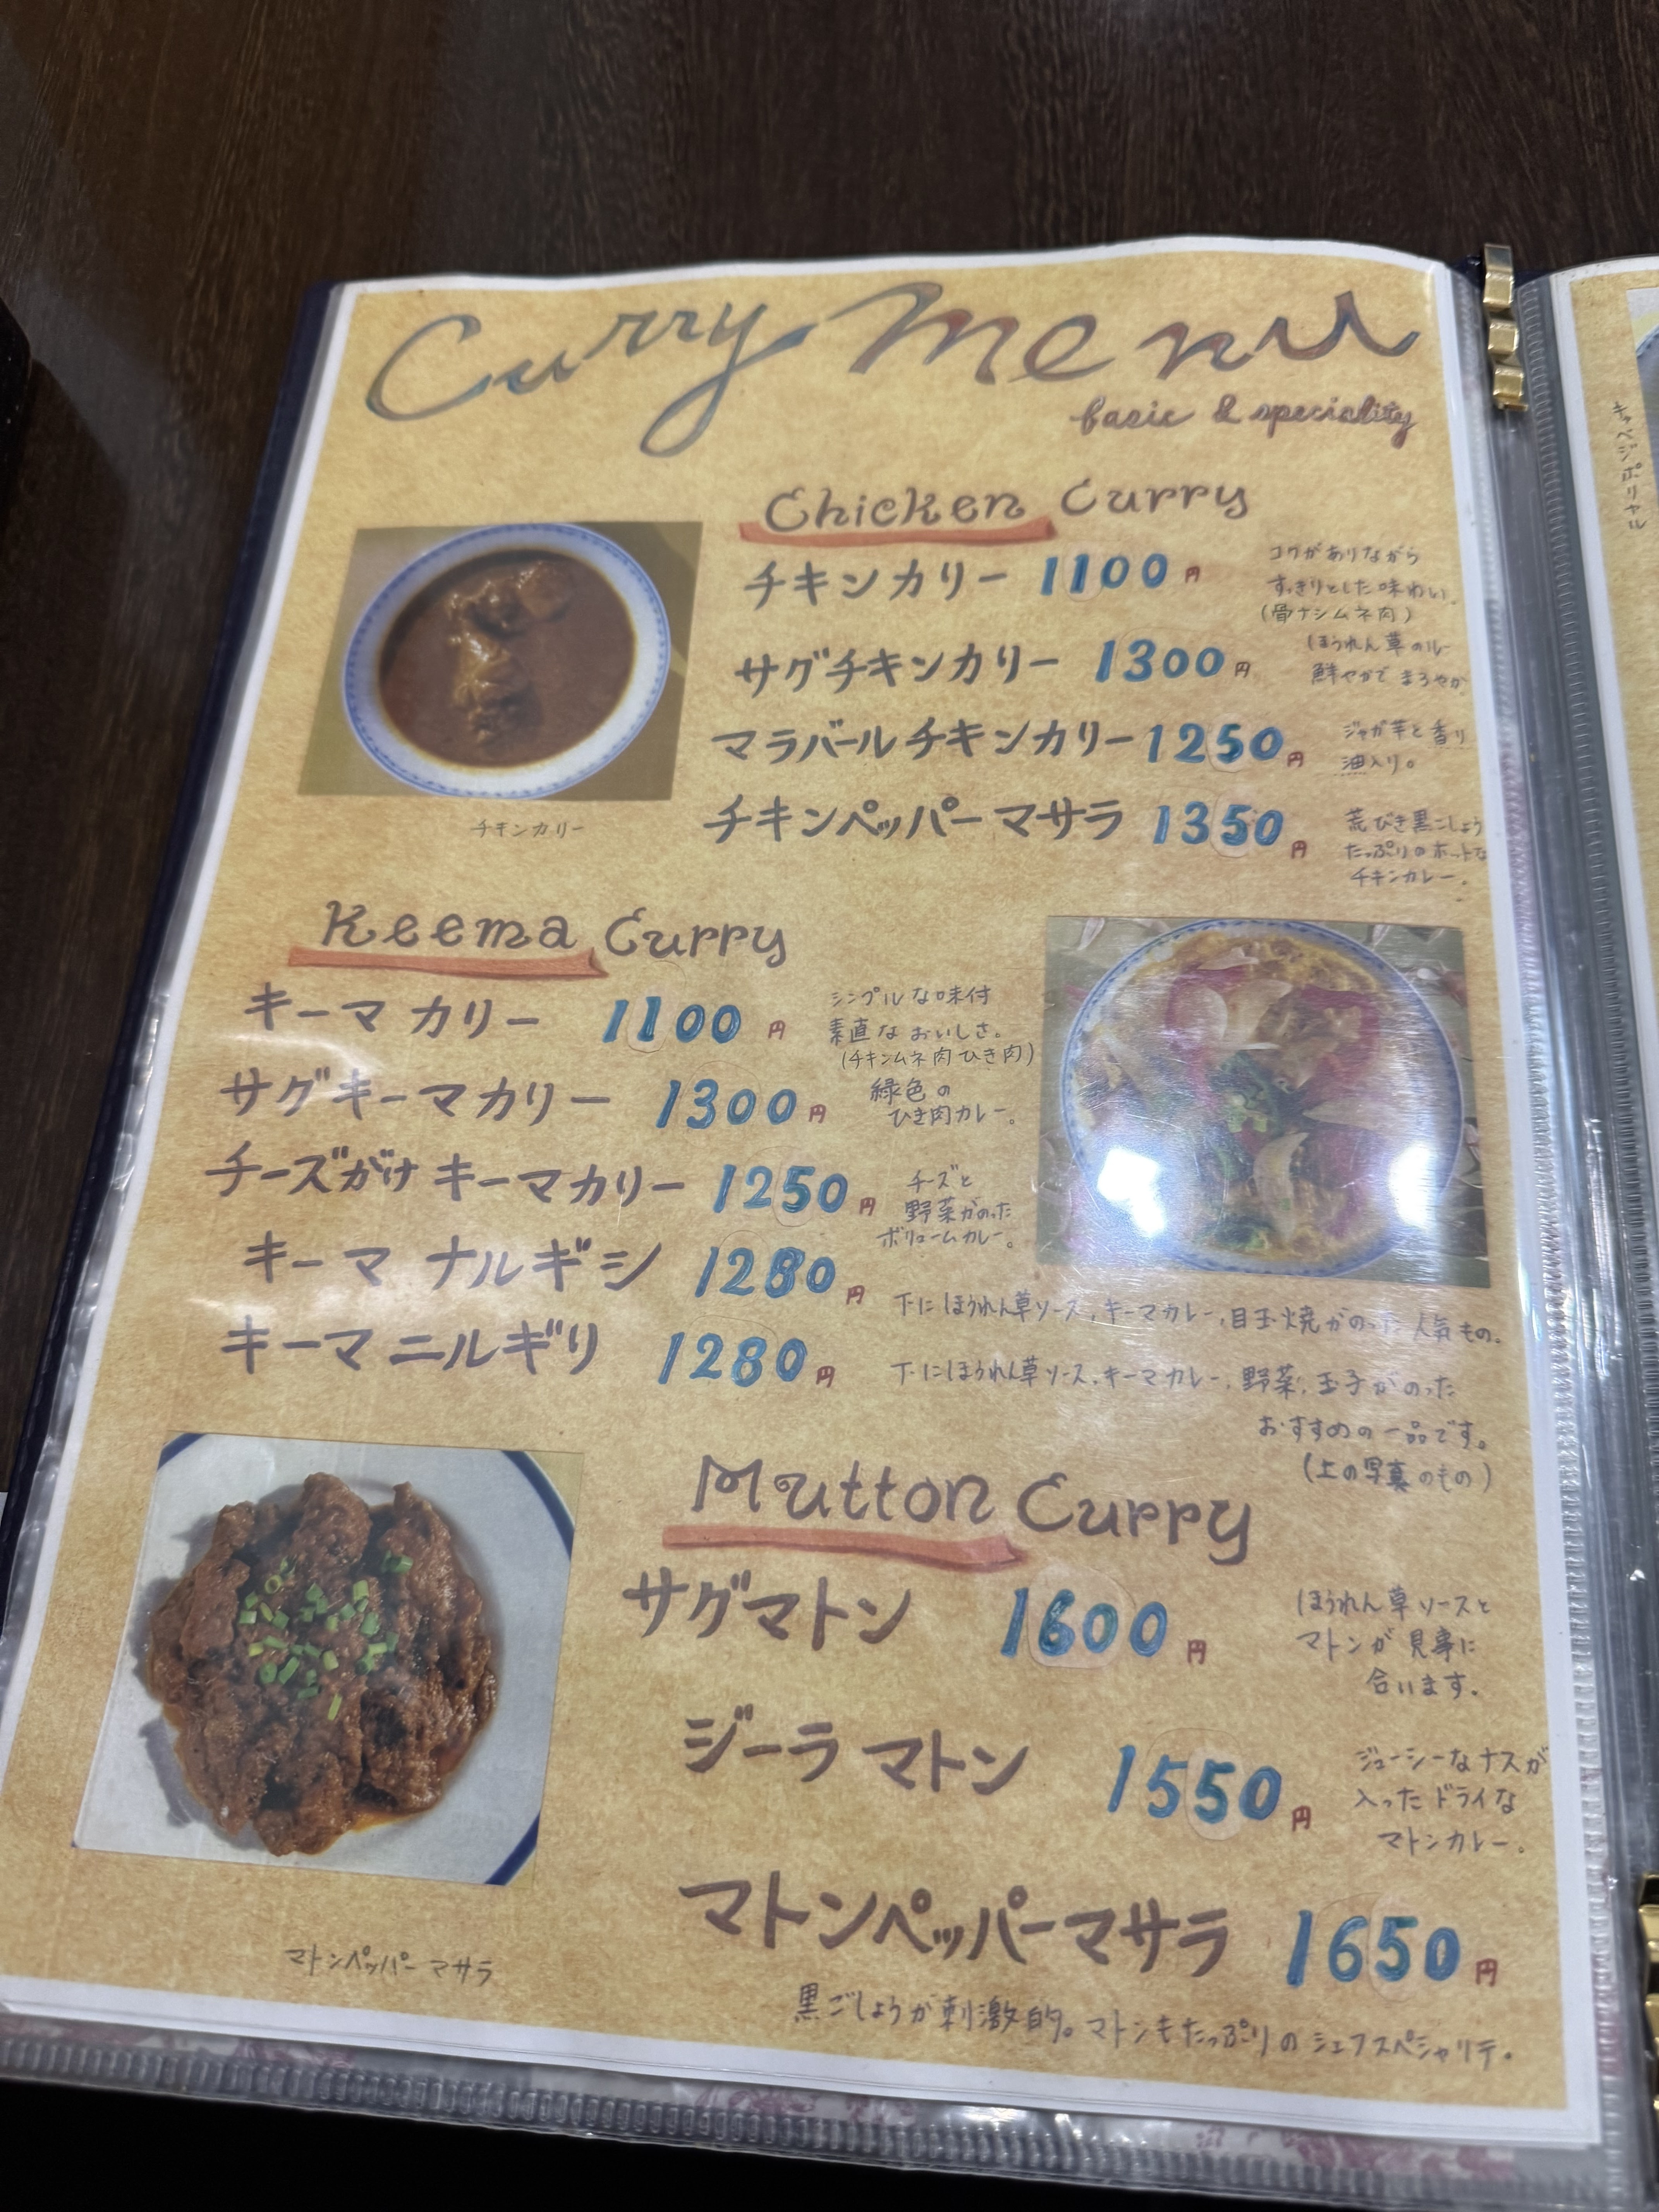 Curry Menu
basic & speciality
Chicken Curry
チキンカリー 1100円
コクがありながら
すっきりとした味わい。
(骨ナシムネ肉)
サグチキンカリー 1300円
ほうれん草のルー
鮮やかでまろやか
マラバールチキンカリー 1250円
ジャガ芋と香り
油入り。
チキンペッパーマサラ 1350円
荒びき黒こしょう
たっぷりのホットな
チキンカレー。
チキンカリー
Keema Curry
キーマ カリー 1100円
シンプルな味付
素直なおいしさ。
(チキンムネ肉ひき肉)
サグキーマカリー 1300円
緑色の
ひき肉カレー。
チーズがけキーマカリー 1250円
チーズと
野菜がのった
ボリュームカレー。
キーマ ナルギシ 1280円
下にほうれん草ソース、キーマカレー、目玉焼がのった人気もの。
キーマニルギリ 1280円
下にほうれん草ソース、キーマカレー、野菜、玉子がのった
おすすめの一品です。
(上の写真のもの)
Mutton Curry
サグマトン 1600円
ほうれん草ソースと
マトンが見事に
合います。
ジーラ マトン 1550円
ジューシーなナスが
入ったドライな
マトンカレー。
マトンペッパーマサラ 1650円
黒ごしょうが刺激的。マトンもたっぷりのシェフスペシャリテ。
マトンペッパーマサラ
キャベジポリヤル